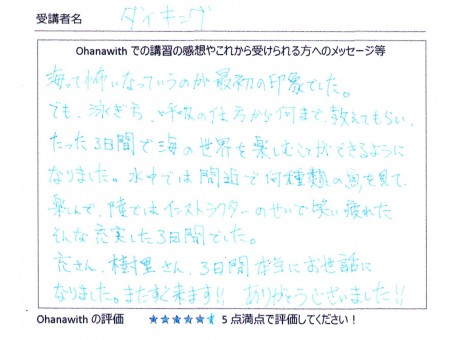 受講者名 ダイキング
Ohanawith での講習の感想やこれから受けられる方へのメッセージ等
海って怖いなっていうのが最初の印象でした。
でも、泳ぎ方、呼吸の仕方から何まで、教えてもらい、
たった3日間で海の世界を楽しむことができるように
なりました。水中では間近で何種類もの魚を見て、
楽しんで、陸ではインストラクターのせいで笑い疲れた
そんな充実した3日間でした。
花さん、樹里さん、3日間本当にお世話に
なりました。またすぐ来ます!! ありがとうございました!!
Ohanawith の評価 ★★★★★ 5 点満点で評価してください!